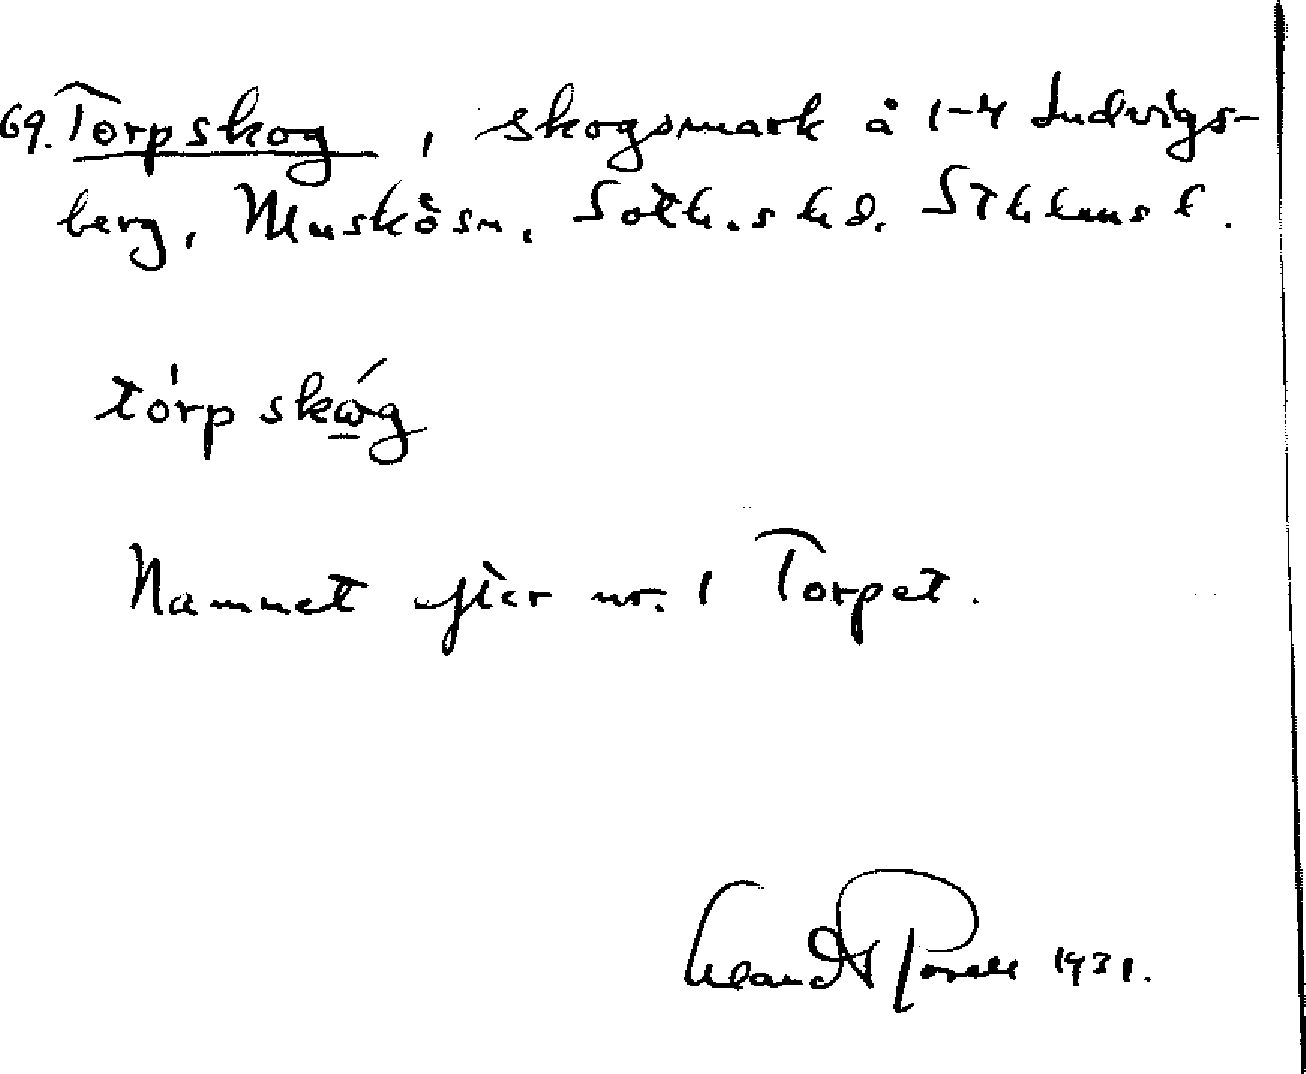 69. Torpskog, skogsmark å 1-4 Ludvigs-
berg, Muskö sn. Soth.s hd. Sthlms l.
tórp skóg
Namnet efter nr. 1 Torpet.
1931.